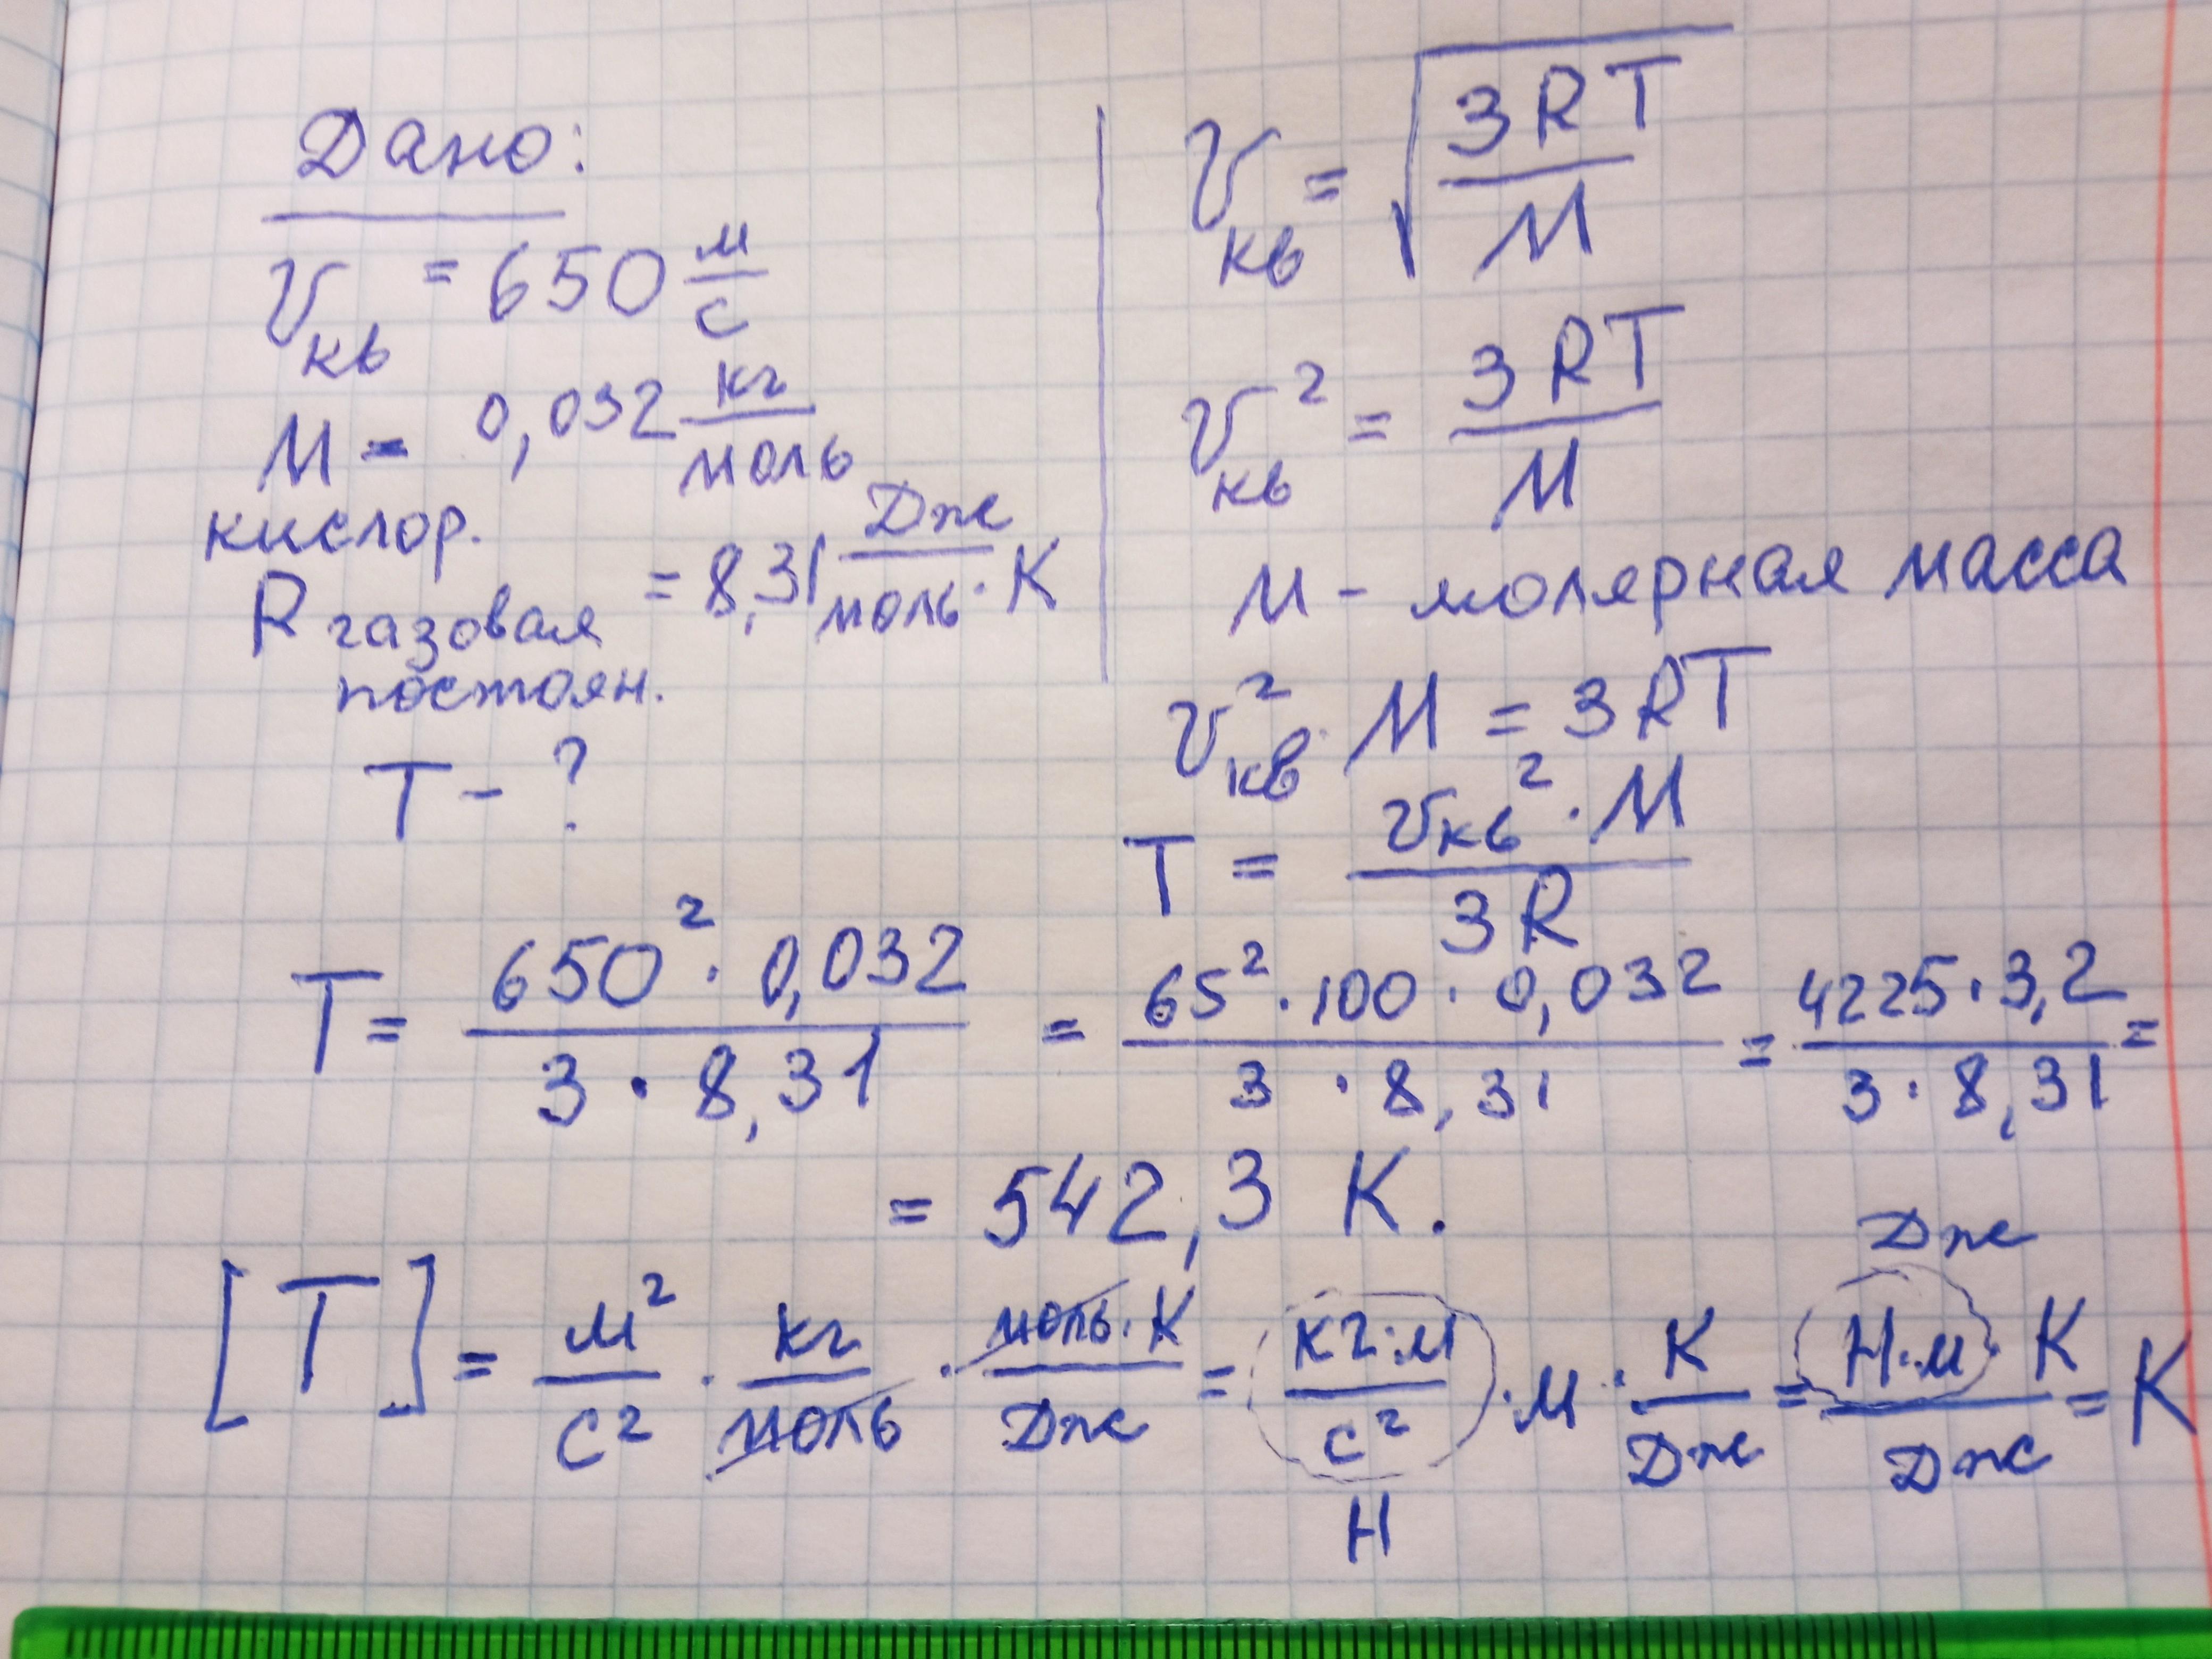 Дано:
v кв = 650 м/с
M = 0,032 кг/моль
кислор.
R газовая постоян. = 8,31 Дж/моль·К
T - ?
v кв = √(3RT/M)
v кв² = 3RT/M
M - молярная масса
v² кв · M = 3RT
T = v кв² · M / 3R
T = 650² · 0,032 / 3 · 8,31 = 65² · 100 · 0,032 / 3 · 8,31 = 4225 · 3,2 / 3 · 8,31 =
= 542,3 К.
[T] = м²/с² · кг/моль · моль·К/Дж = кг·м/с² · м · К/Дж = Н·м · К/Дж = К
Н
Дж